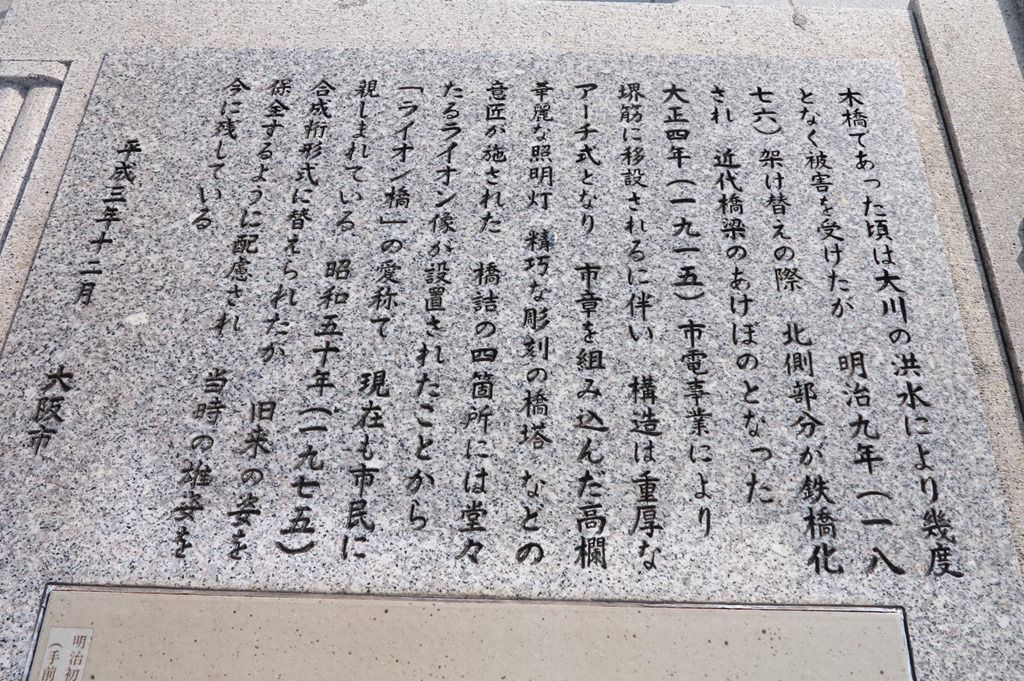 木橋であった頃は大川の洪水により幾度
となく被害を受けたが　明治九年（一八
七六）架け替えの際　北側部分が鉄橋化
され　近代橋梁のあけぼのとなった
大正四年（一九一五）市電事業により
堺筋に移設されるに伴い　構造は重厚な
アーチ式となり　市章を組み込んだ高欄
華麗な照明灯　精巧な彫刻の橋塔　などの
意匠が施された　橋詰の四箇所には堂々
たるライオン像が設置されたことから
「ライオン橋」の愛称で　現在も市民に
親しまれている　昭和五十年（一九七五）
合成桁形式に替えられたが　旧来の姿を
保全するように配慮され　当時の雄姿を
今に残している
平成三年十二月
大阪市
明治初
（手前